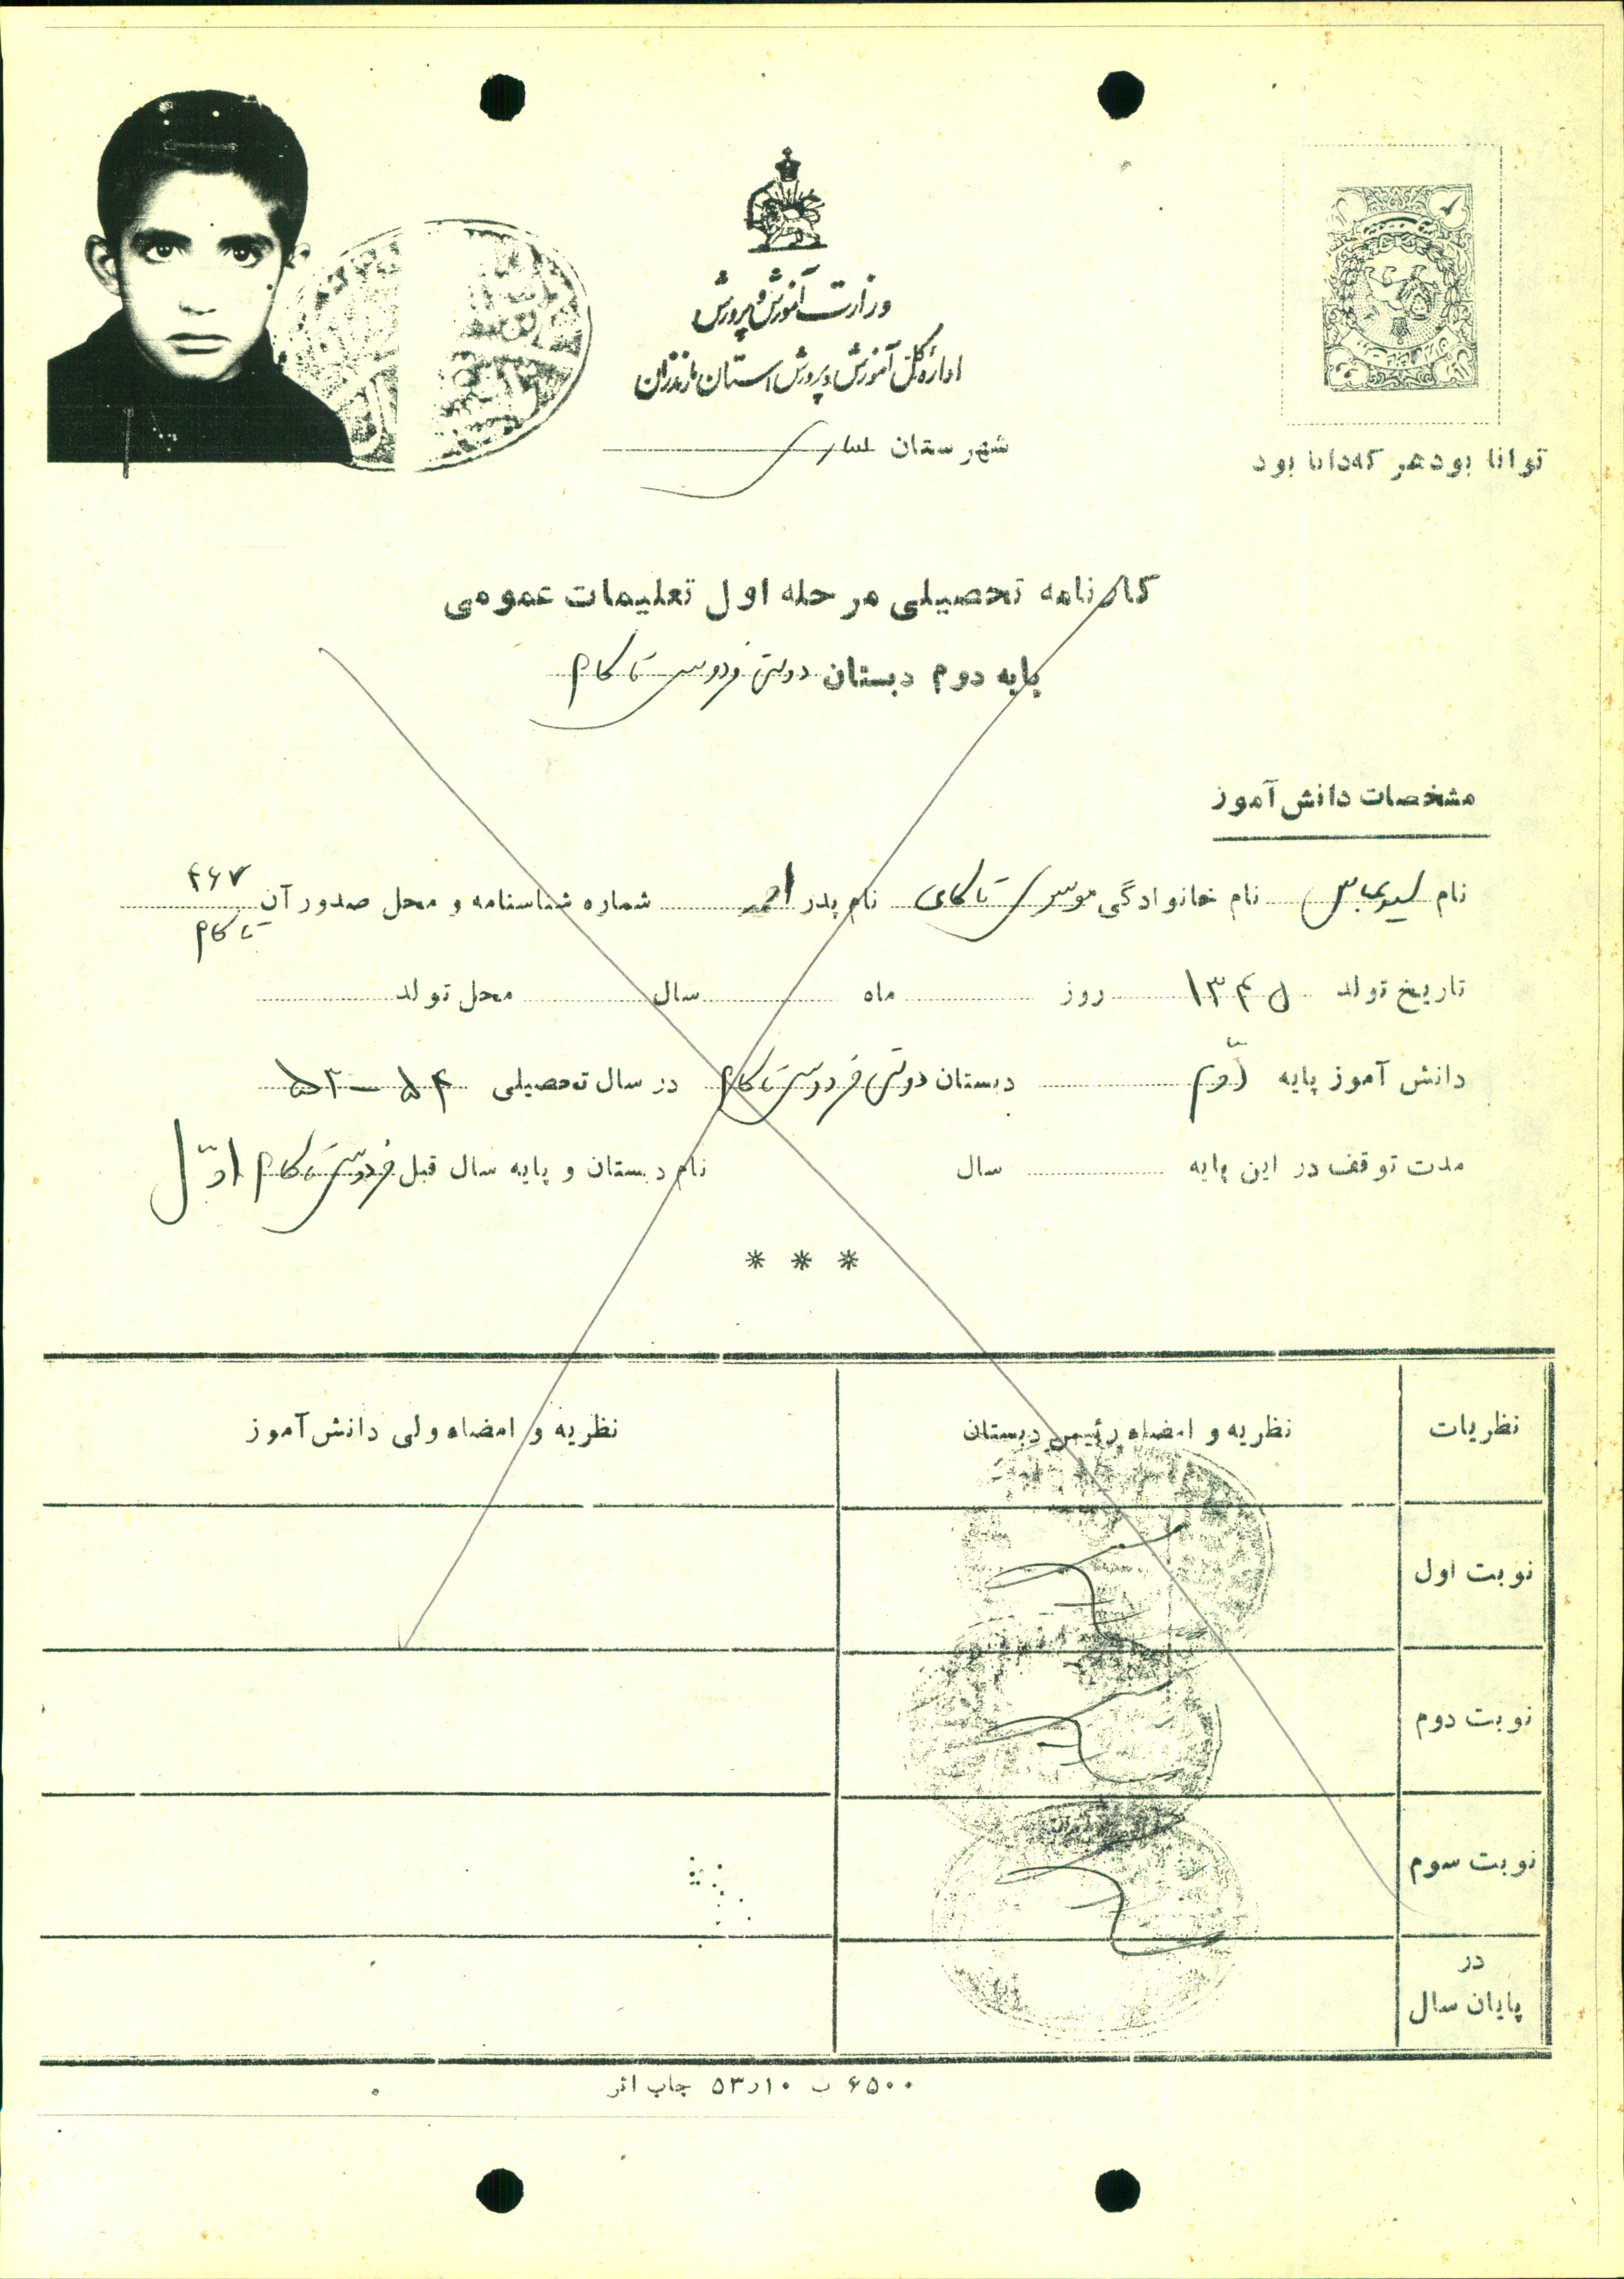 وزارت آموزش و پرورش
اداره کل آموزش و پرورش استان مازندران
شهرستان ساری
توانا بود هر که دانا بود
کارنامه تحصیلی مرحله اول تعلیمات عمومی
پایه دوم دبستان دولتی فردوسی تاکام
مشخصات دانش آموز
نام سیدعباس نام خانوادگی موسوی تاکامی نام پدر احمد شماره شناسنامه و محل صدور آن ۴۶۷ تاکام
تاریخ تولد ۱۳۴۵ روز ماه سال محل تولد
دانش آموز پایه دوم دبستان دولتی فردوسی تاکام در سال تحصیلی ۵۴ – ۵۳
مدت توقف در این پایه سال نام دبستان و پایه سال قبل فردوسی تاکام اوّل
* * *
نظریات نظریه و امضاء رئیس دبستان نظریه و امضاء ولی دانش آموز
نوبت اول
نوبت دوم
نوبت سوم
در
پایان سال
۶۵۰۰ ب ۱۰ر۵۳ چاپ اثر